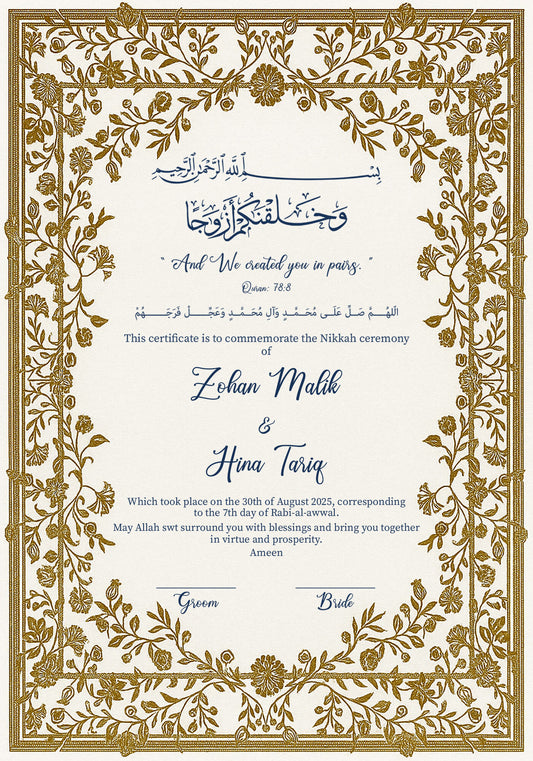 بِسْمِ اللَّهِ الرَّحْمَٰنِ الرَّحِيمِ
وَخَلَقْنَٰكُمْ أَزْوَٰجًا
“ And We created you in pairs. ”
Quran: 78:8
اللهُمَّ صَلِّ عَلَى مُحَمَّدٍ وَآلِ مُحَمَّدٍ وَعَجِّلْ فَرَجَهُمْ
This certificate is to commemorate the Nikkah ceremony
of
Zohan Malik
&
Hina Tariq
Which took place on the 30th of August 2025, corresponding
to the 7th day of Rabi-al-awwal.
May Allah swt surround you with blessings and bring you together
in virtue and prosperity.
Ameen
Groom Bride